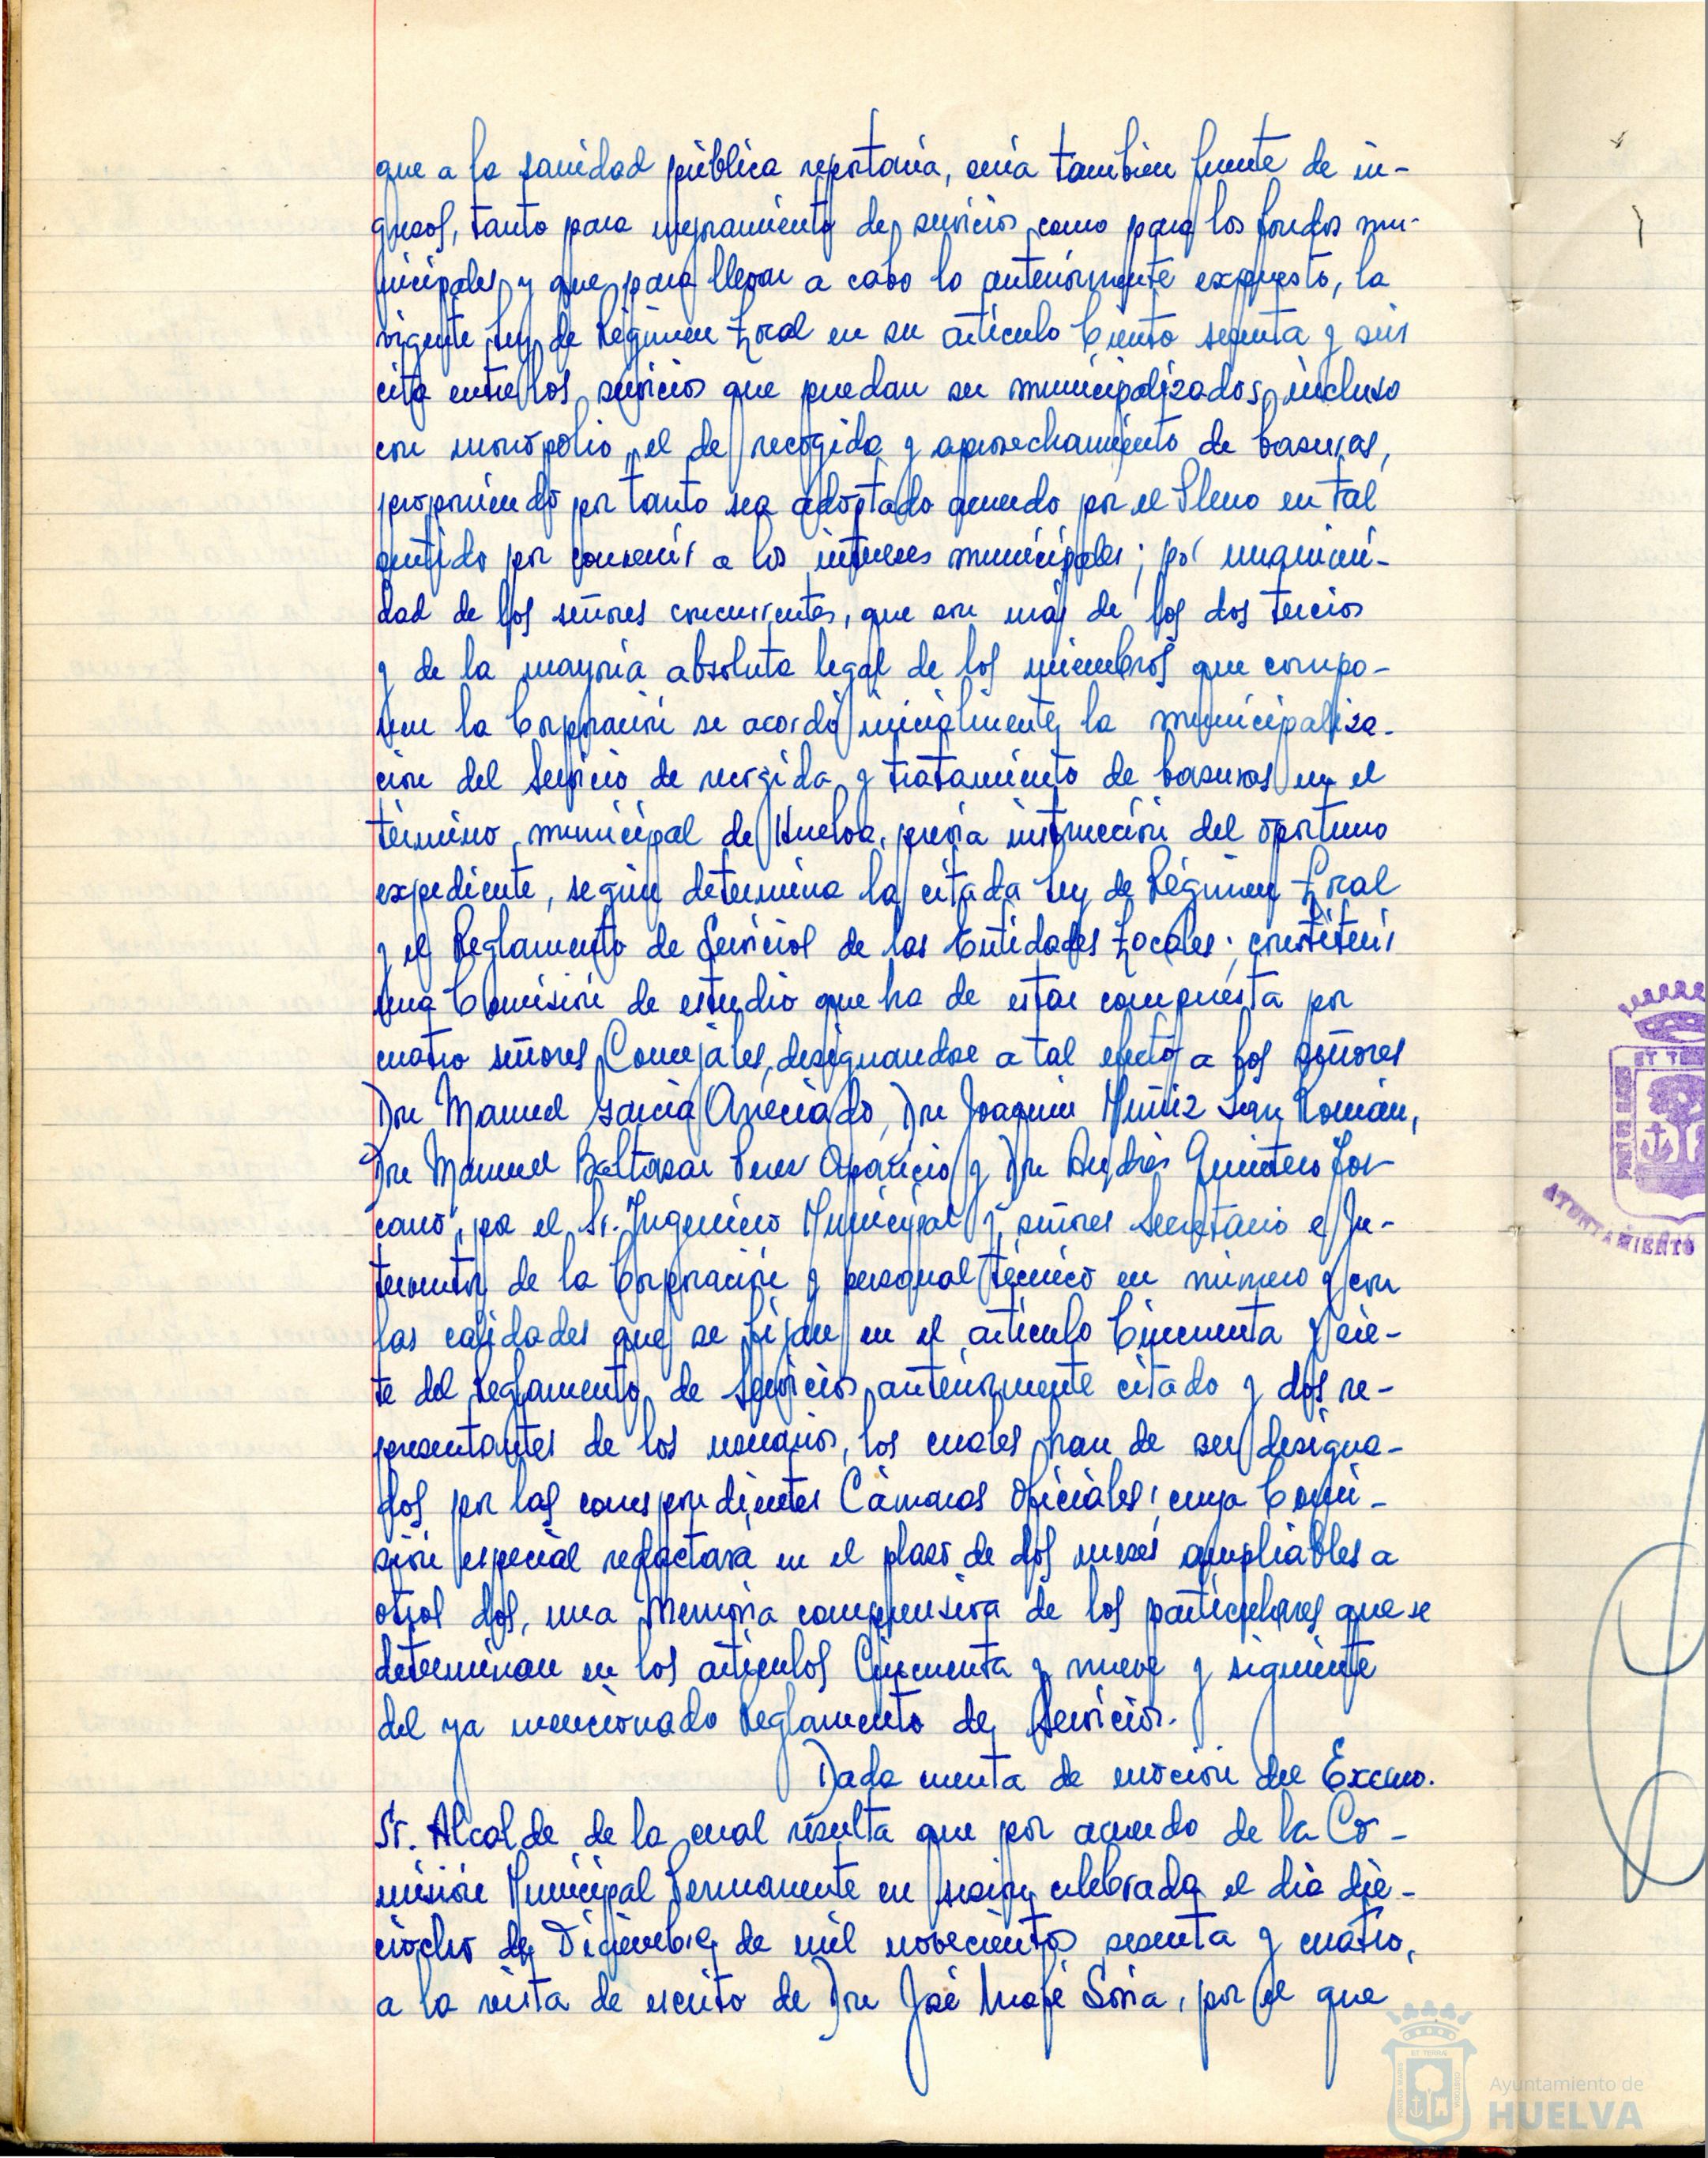 que a la sanidad pública reportaría, sería también fuente de in-
gresos, tanto para mejoramiento de servicios como para los fondos mu-
nicipales y que para llevar a cabo lo anteriormente expuesto, la
vigente Ley de Régimen Local en su artículo Ciento sesenta y seis
cita entre los servicios que puedan ser municipalizados, incluso
con monopolio, el de recogida y aprovechamiento de basuras,
proponiendo por tanto sea adoptado acuerdo por el Pleno en tal
sentido por convenir a los intereses municipales; por unanimi-
dad de los señores concurrentes, que son más de los dos tercios
y de la mayoría absoluta legal de los miembros que compo-
nen la Corporación se acordó inicialmente la municipaliza-
ción del Servicio de recogida y tratamiento de basuras en el
término municipal de Huelva, previa instrucción del oportuno
expediente, según determina la citada Ley de Régimen Local
y el Reglamento de Servicios de las Entidades Locales; constituir
una Comisión de estudio que ha de estar compuesta por
cuatro señores Concejales, designandose a tal efecto a los señores
Don Manuel García Areciado, Don Joaquín Muñiz San Román,
Don Manuel Baltasar Perez Aparicio y Don Andrés Quintero Tos-
cano, por el Sr. Ingeniero Municipal y señores Secretario e In-
terventor de la Corporación y personal técnico en número y con
las calidades que se fijan en el artículo Cincuenta y sie-
te del Reglamento de Servicios anteriormente citado y dos re-
presentantes de los usuarios, los cuales han de ser designa-
dos por las correspondientes Cámaras Oficiales; cuya Comi-
sión especial redactará en el plazo de dos meses ampliables a
otros dos, una Memoria comprensiva de los particulares que se
determinan en los artículos Cincuenta y nueve y siguiente
del ya mencionado Reglamento de Servicios.
Dada cuenta de moción del Excmo.
Sr. Alcalde de la cual resulta que por acuerdo de la Co-
misión Municipal Permanente en sesión celebrada el día die-
ciocho de Diciembre de mil novecientos sesenta y cuatro,
a la vista de escrito de Don José Mafé Soria, por el que
ET TERRAE
AYUNTAMIENTO
Ayuntamiento de
HUELVA